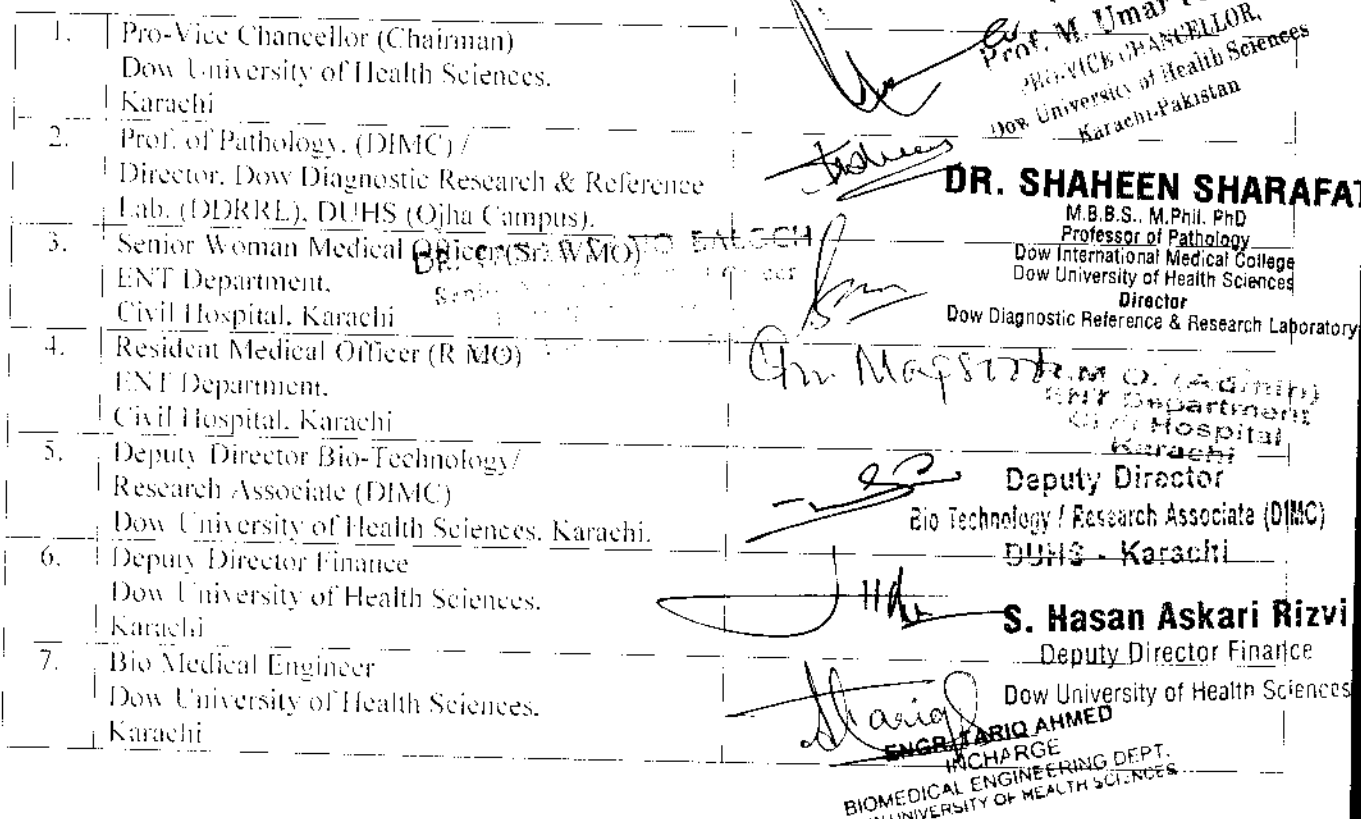 1. Pro-Vice Chancellor (Chairman)
Dow University of Health Sciences.
Karachi
Prof. M. Umar
PRO-VICE CHANCELLOR,
Dow University of Health Sciences
Karachi-Pakistan
2. Prof. of Pathology, (DIMC) /
Director, Dow Diagnostic Research & Reference
Lab. (DDRRL), DUHS (Ojha Campus).
DR. SHAHEEN SHARAFAT
M.B.B.S., M.Phil, PhD
Professor of Pathology
Dow International Medical College
Dow University of Health Sciences
Director
Dow Diagnostic Reference & Research Laboratory
3. Senior Woman Medical Officer (Sr. WMO)
ENT Department,
Civil Hospital, Karachi
BALOCH
4. Resident Medical Officer (R MO)
ENT Department,
Civil Hospital, Karachi
R.M.O. (Admin)
ENT Department
Civil Hospital
Karachi
5. Deputy Director Bio-Technology/
Research Associate (DIMC)
Dow University of Health Sciences, Karachi.
Deputy Director
Bio Technology / Research Associate (DIMC)
DUHS - Karachi
6. Deputy Director Finance
Dow University of Health Sciences.
Karachi
S. Hasan Askari Rizvi
Deputy Director Finance
Dow University of Health Sciences
7. Bio Medical Engineer
Dow University of Health Sciences.
Karachi
Tariq
ENGR. TARIQ AHMED
INCHARGE
BIOMEDICAL ENGINEERING DEPT.
UNIVERSITY OF HEALTH SCIENCES